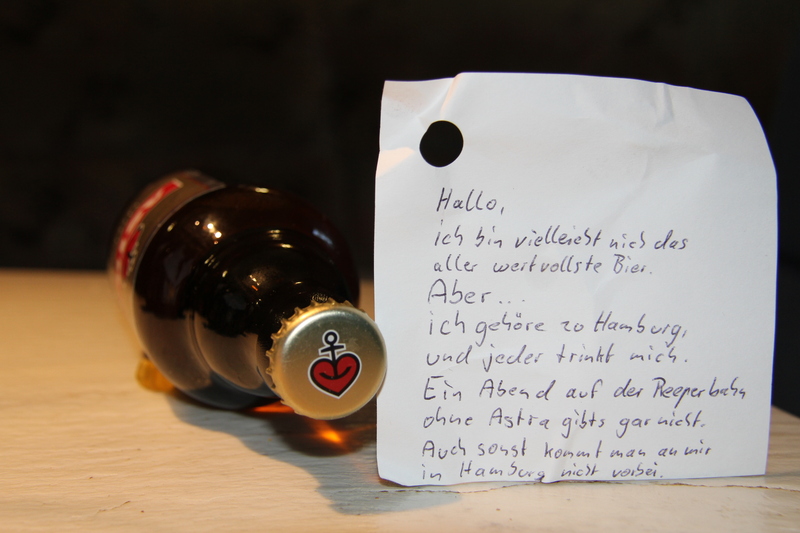 Hallo,
ich bin vielleicht nich das
aller wertvollste Bier.
Aber...
ich gehöre zu Hamburg,
und jeder trinkt mich.
Ein Abend auf der Reeperbahn
ohne Astra gibts gar nicht.
Auch sonst kommt man an mir
in Hamburg nicht vorbei.